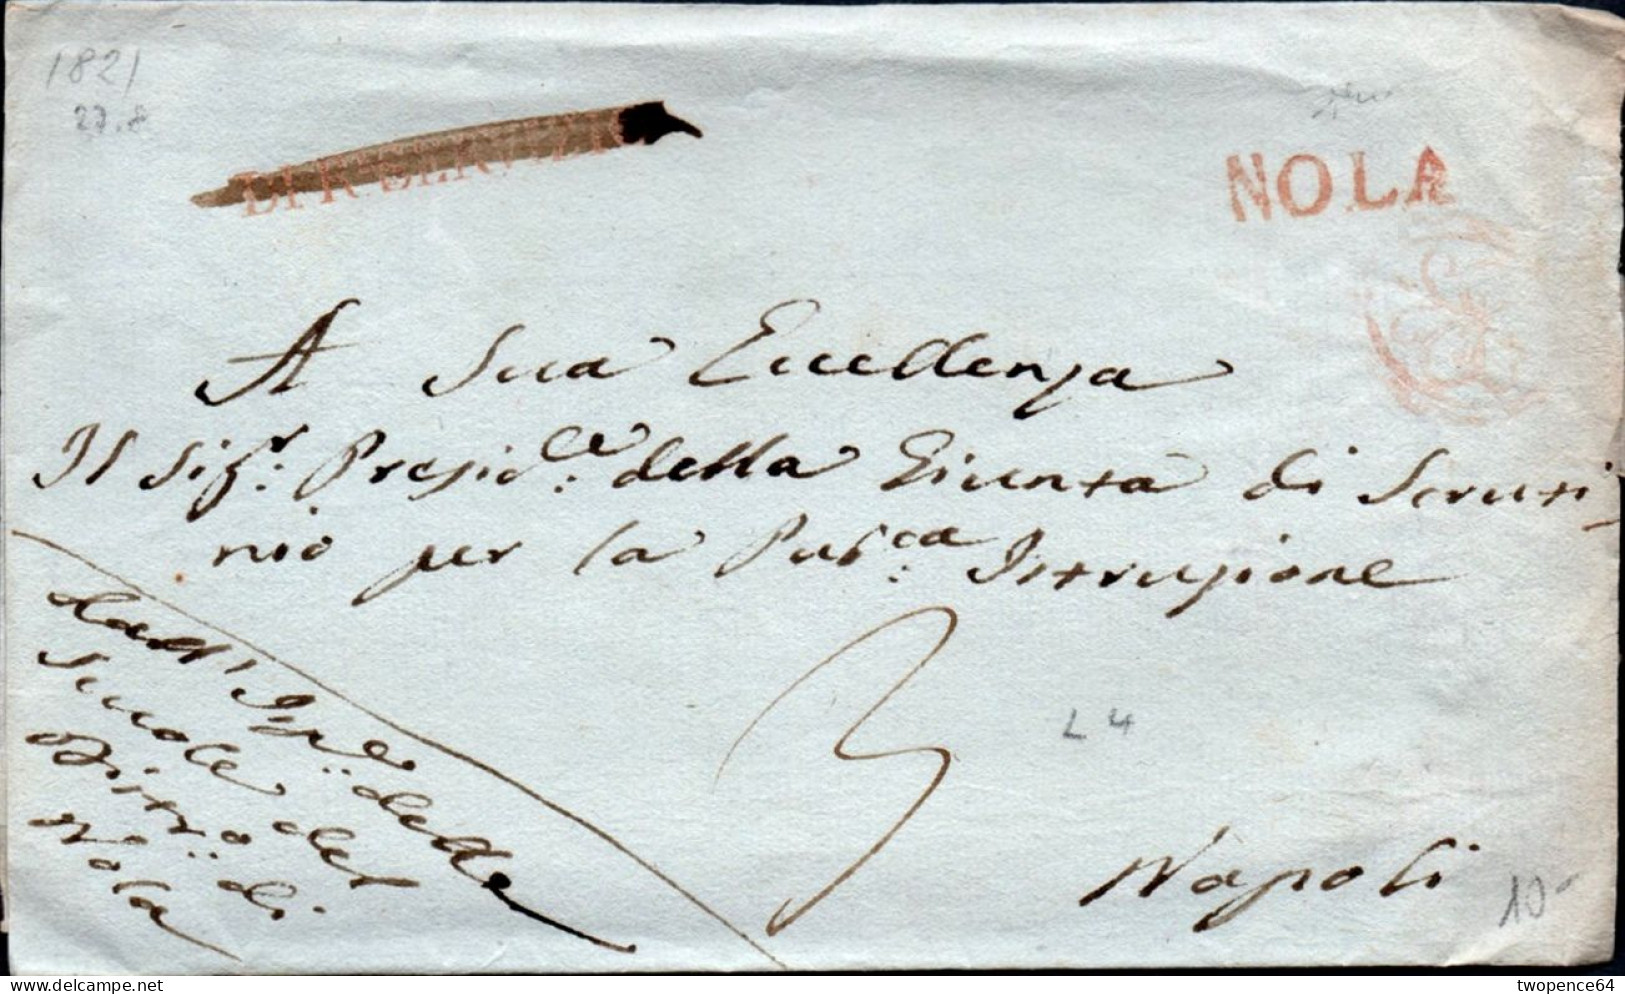 1821
27.8
NOLA
A Sua Eccellenza
Il Sig.r Presid.te della Giunta di Scruti
nio per la Pub.ca Istruzione
dall'Isp.re delle
Scuole del
Distro. di
Nola
3
L 4
Napoli
10-
twopence64